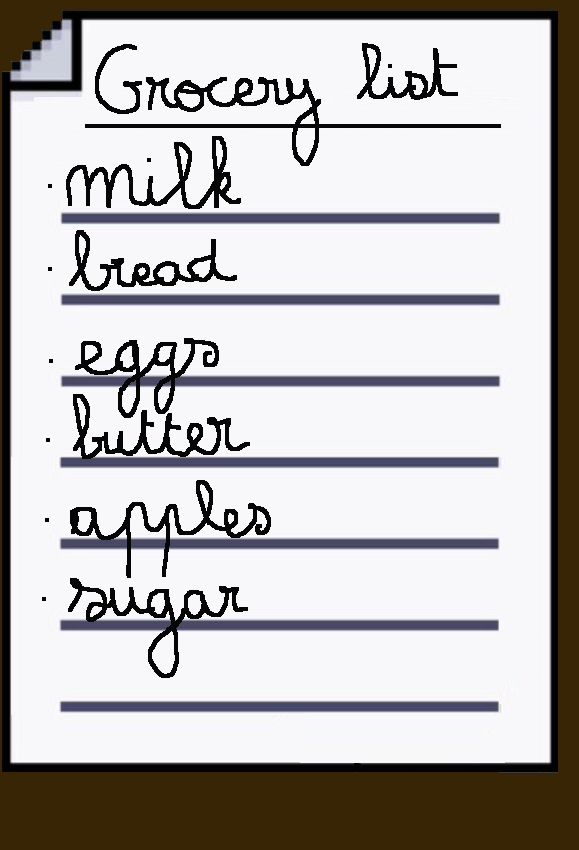 Grocery list
· milk
· bread
· eggs
· butter
· apples
· sugar